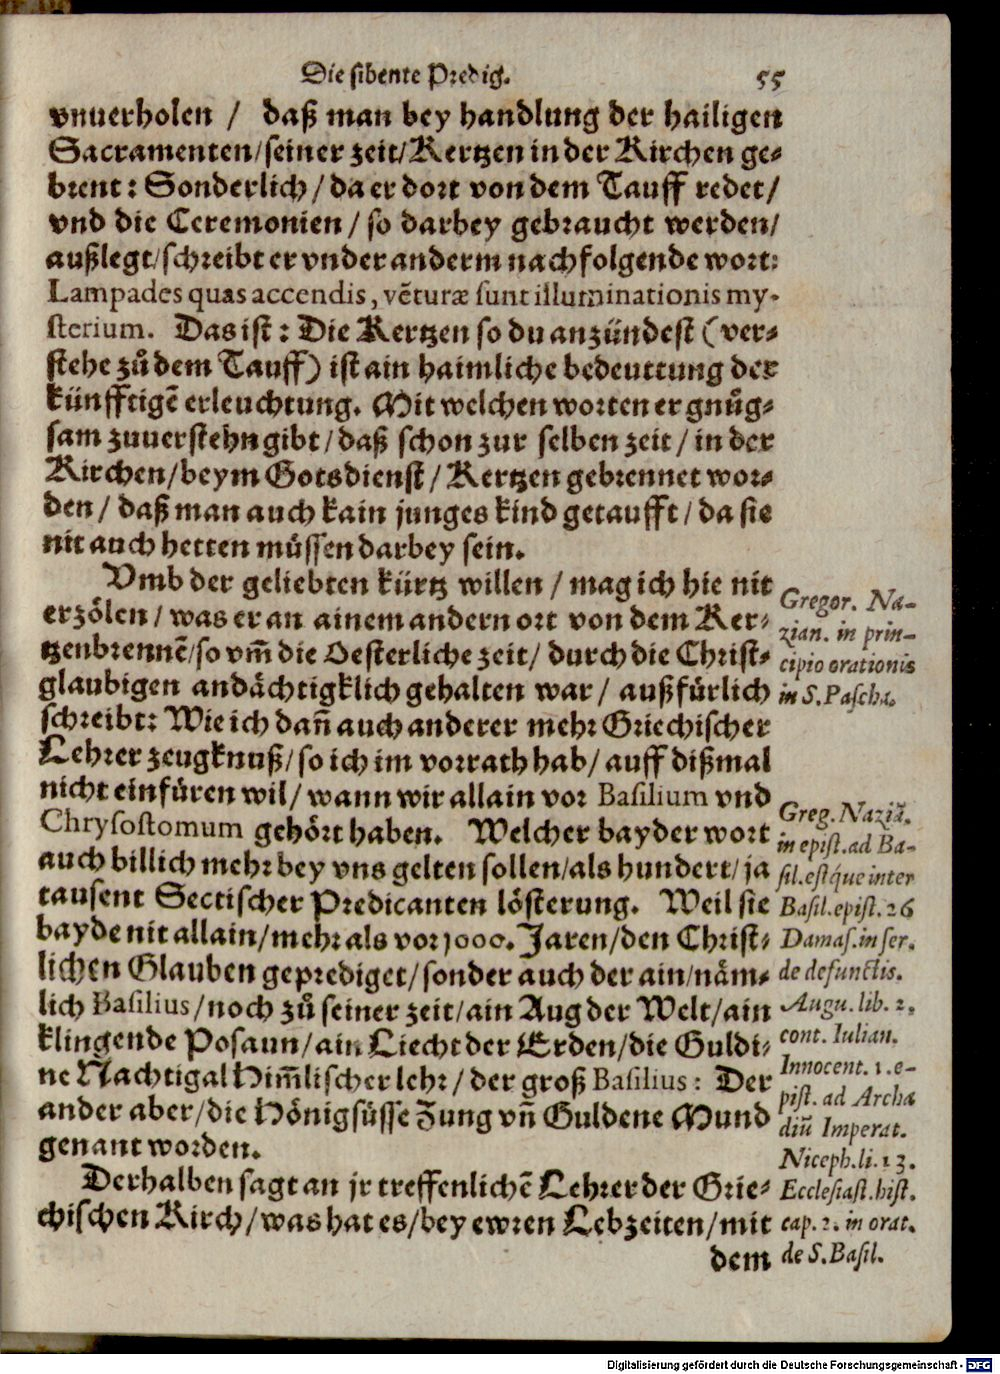 Die sibente Predig.
55
vnuerholen / daß man bey handlung der hailigen
Sacramenten/seiner zeit/Kertzen in der Kirchen ge-
brent: Sonderlich/da er dort von dem Tauff redet/
vnd die Ceremonien / so darbey gebraucht werden/
außlegt/schreibt er vnder anderm nachfolgende wort:
Lampades quas accendis, vẽturæ sunt illuminationis my-
sterium. Das ist: Die Kertzen so du anzündest (ver-
stehe zů dem Tauff) ist ain haimliche bedeuttung der
künfftigẽ erleuchtung. Mit welchen worten er gnůg-
sam zuuerstehn gibt/daß schon zur selben zeit/in der
Kirchen/beym Gotsdienst/Kertzen gebrennet wor-
den/daß man auch kain junges kind getaufft/da sie
nit auch hetten müssen darbey sein.
Vmb der geliebten kürtz willen / mag ich hie nit
erzölen/was er an ainem andern ort von dem Ker-
tzenbrennẽ/so vm̃ die Oesterliche zeit/ durch die Christ-
glaubigen andächtigklich gehalten war/ außfürlich
schreibt: Wie ich dañ auch anderer mehr Griechischer
Lehrer zeugknuß/so ich im vorrath hab/auff dißmal
nicht einfüren wil/wann wir allain vor Basilium vnd
Chrysostomum gehört haben. Welcher bayder wort
auch billich mehr bey vns gelten sollen/als hundert/ja
tausent Sectischer Predicanten lösterung. Weil sie
bayde nit allain/mehr als vor 1000. Jaren/den Christ-
lichen Glauben geprediget/sonder auch der ain/näm-
lich Basilius/noch zů seiner zeit/ain Aug der Welt/ain
klingende Posaun/ain Liecht der Erden/die Guldi-
ne Nachtigal Him̃lischer lehr/der groß Basilius: Der
ander aber/die Hönigsüsse Zung vñ Guldene Mund
genant worden.
Derhalben sagt an jr treffenlichẽ Lehrer der Grie-
chischen Kirch/was hat es/bey ewren Lebzeiten/mit
dem
Gregor. Na-
zian. in prin-
cipio orationis
in S. Pascha.
Greg. Naziã.
in epist. ad Ba-
sil. est que inter
Basil. epist. 26
Damas. in ser.
de defunctis.
Augu. lib. 2.
cont. Iulian.
Innocent. 1. e-
pist. ad Archa
diũ Imperat.
Niceph. li. 13.
Ecclesiast. hist.
cap. 2. in orat.
de S. Basil.
Digitalisierung gefördert durch die Deutsche Forschungsgemeinschaft - DFG